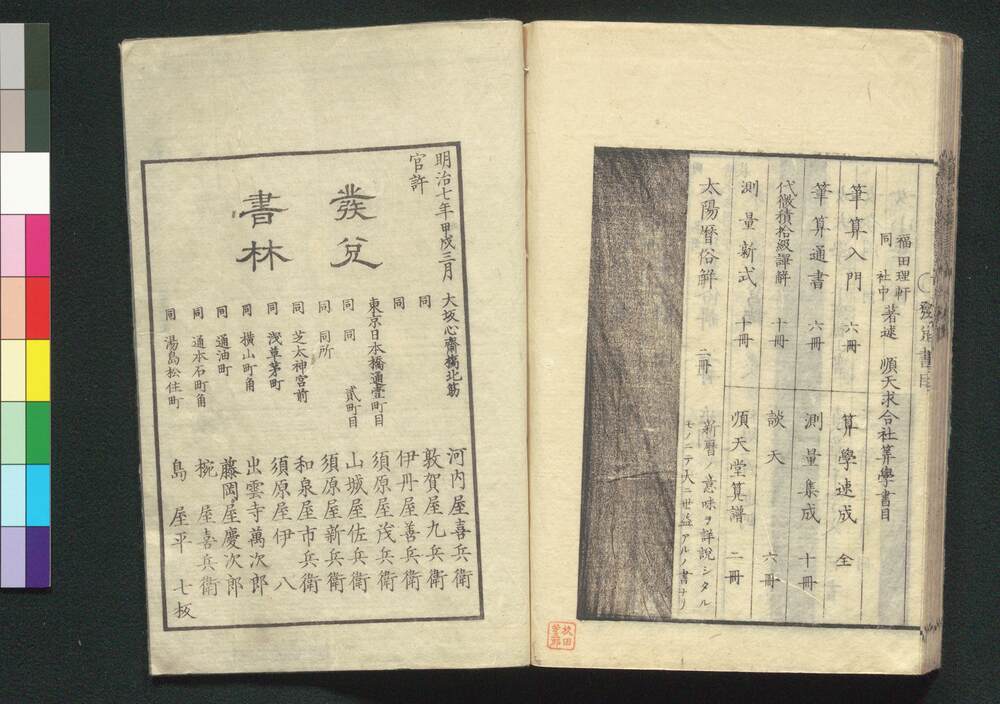 發兌書目
福田理軒
同 社中 著述 順天求合社算學書目
筆算入門 六冊
算學速成 全
筆算通書 六冊
測量集成 十冊
代微積拾級譯解 十冊
談天 六冊
測量新式 十冊
順天堂算譜 二冊
太陽曆俗解 二冊
新曆ノ意味ヲ詳說シタル
モノニテ大ニ世益アルノ書ナリ
明治七年甲戌三月
官許
發兌
書林
大坂心齋橋北筋 河内屋喜兵衛
同 敦賀屋九兵衛
同 伊丹屋善兵衛
東京日本橋通壹町目 須原屋茂兵衛
同 同 貳町目 山城屋佐兵衛
同 同所 須原屋新兵衛
同 芝太神宮前 和泉屋市兵衛
同 淺草茅町 須原屋伊八
同 横山町角 出雲寺萬次郎
同 通油町 藤岡屋慶次郎
同 通本石町角 椀屋喜兵衛
同 湯島松住町 島屋平七板